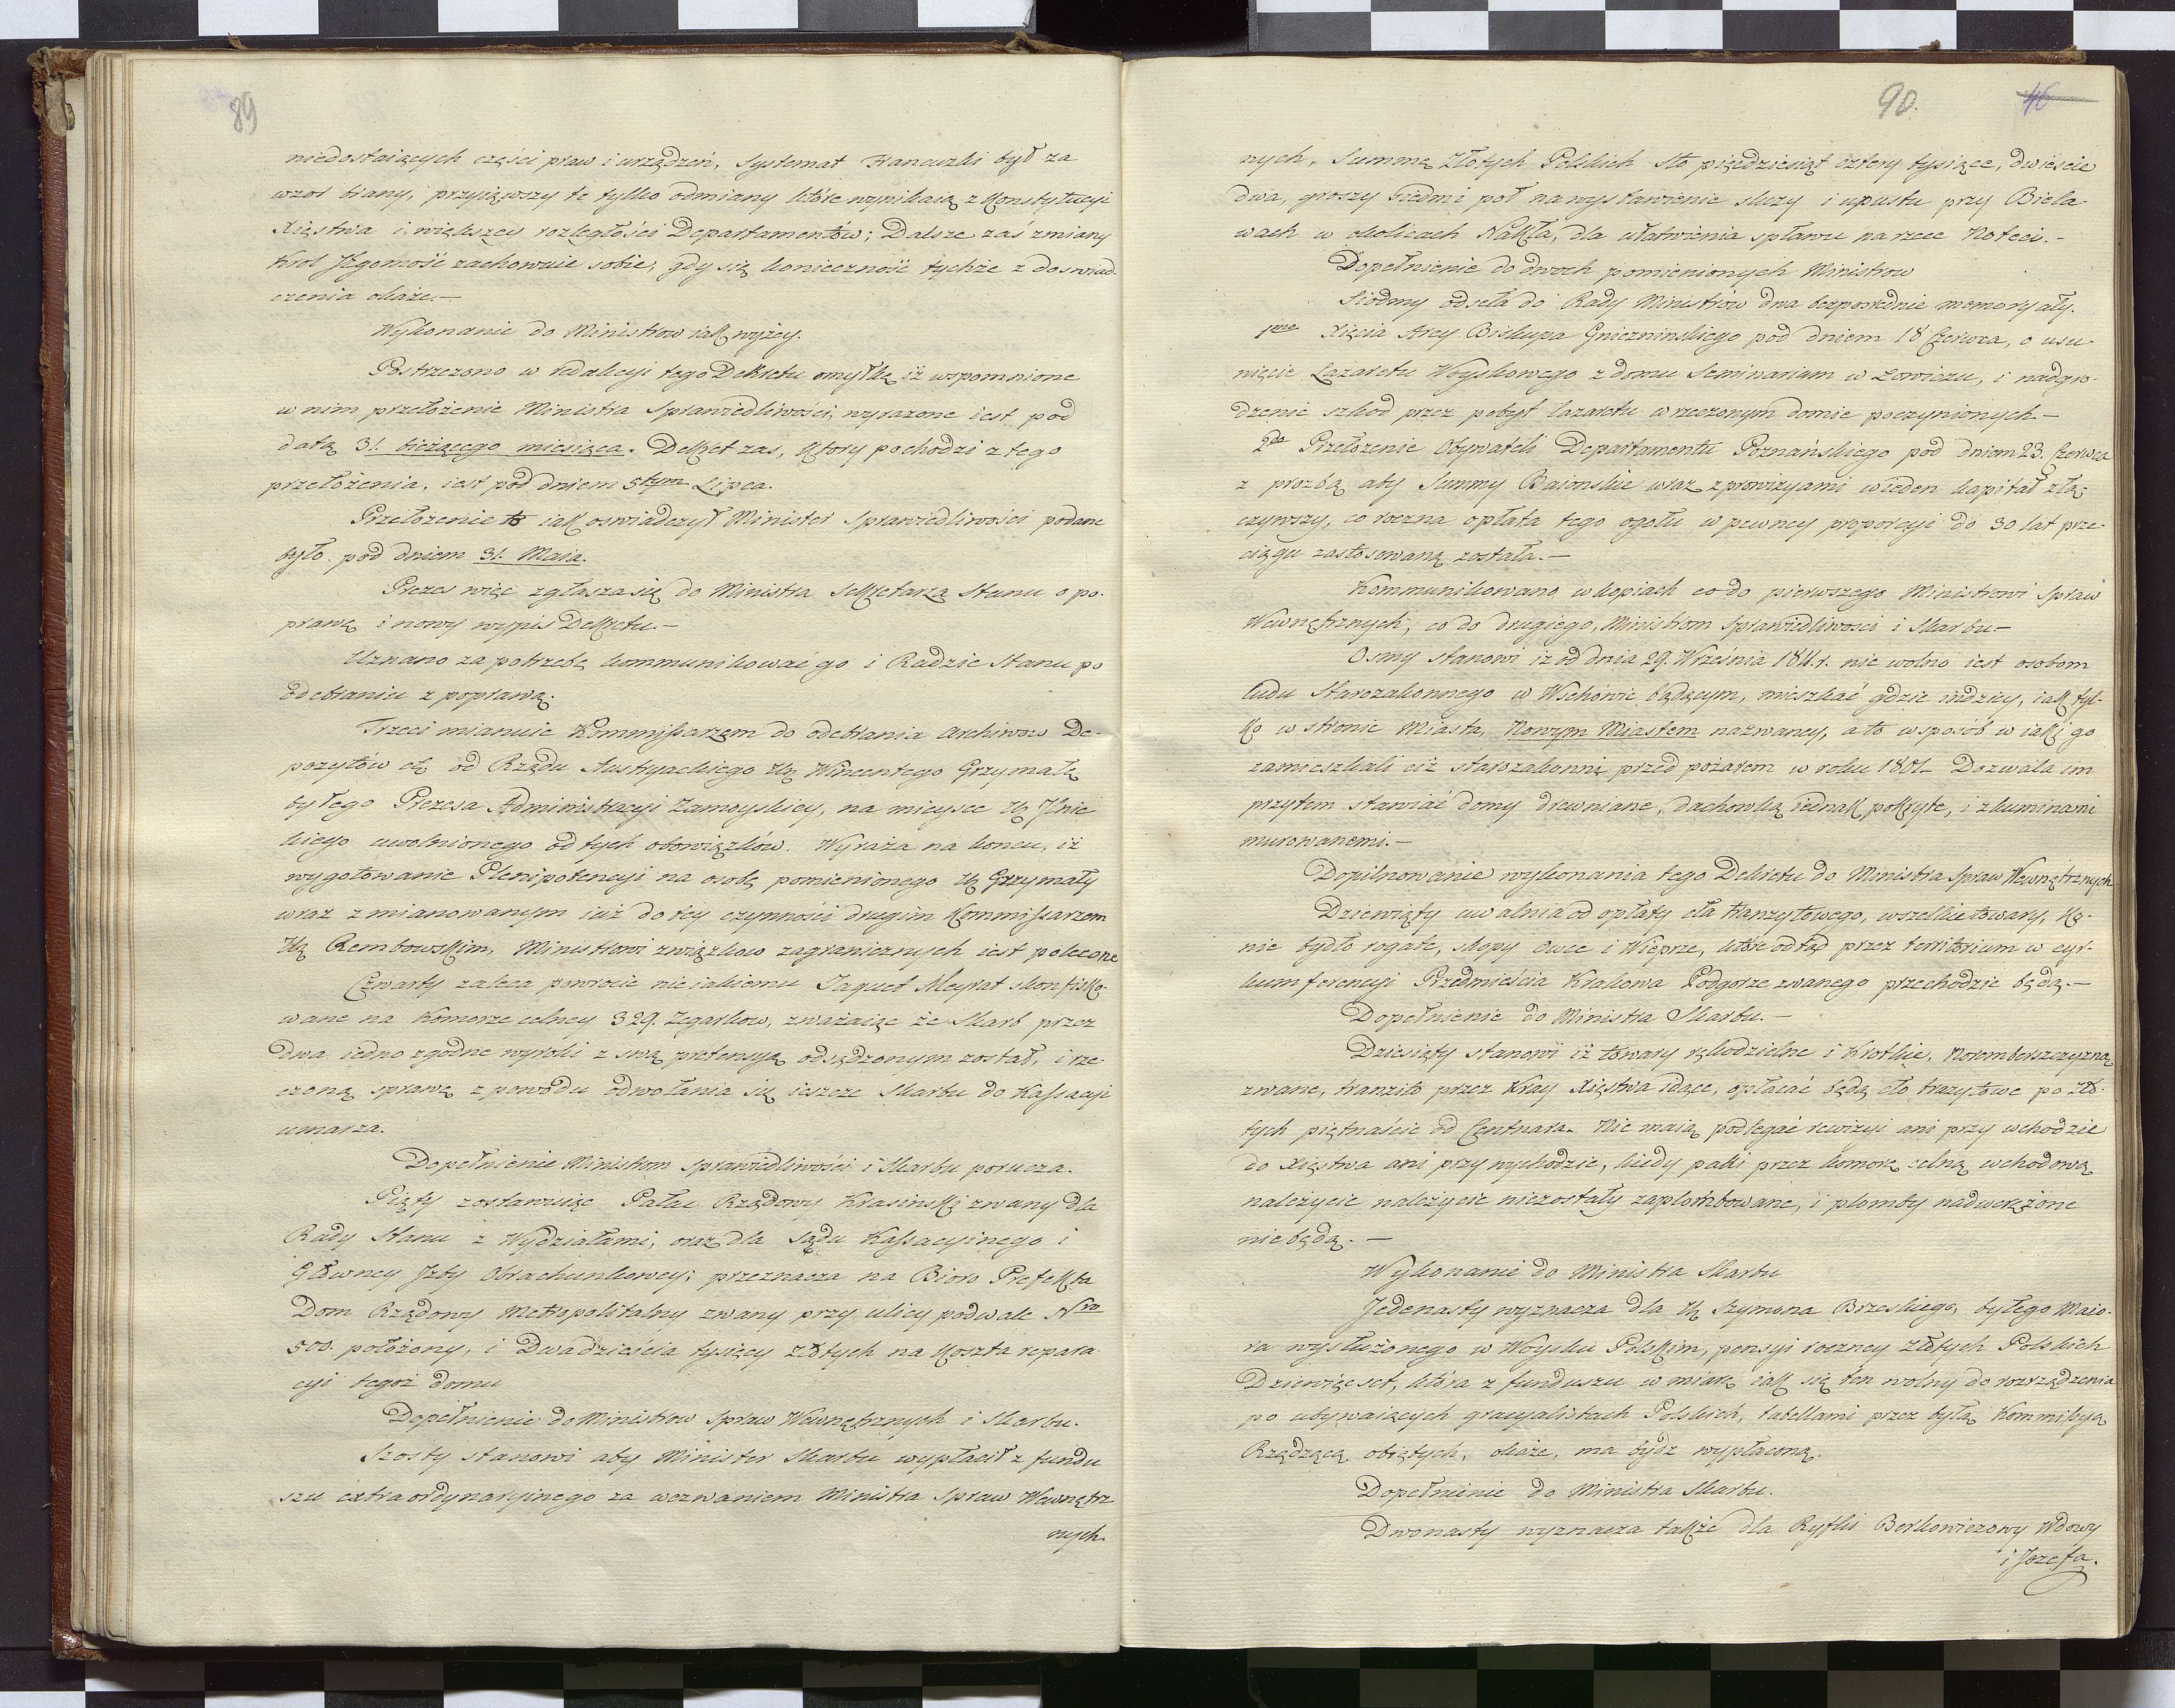 89
niedostaiących części praw i urządzeń, Systemat Francuzki był za
wzor brany, przyiąwszy te tylko odmiany które wynikaią z Konstytucyi
Xięstwa i większey rozległości Departamentów; Dalsze zaś zmiany
Krol Jegomość zachowuie sobie, gdy się konieczność tychże z doswiad-
czenia okaże.—
Wykonanie do Ministrow iak wyżey.
Postrzeżono w redakcyi tego Dekretu omyłkę iż wspomnione
w nim przełożenie Ministra Sprawiedliwości, wyrażone iest pod
datą 31. bieżącego miesiąca. Dekret zas, ktory pochodzi z tego
przełożenia, iest pod dniem 5tym Lipca.
Przełożenie to iak oswiadczył Minister Sprawiedliwości podane
było pod dniem 31. Maia.
Prezes więc zgłasza się do Ministra Sekretarza Stanu o po-
prawę i nowy wypis Dekretu.—
Uznano za potrzebę kommunikować go i Radzie Stanu po
odebraniu z poprawą.
Trzeci mianuie Kommissarzem do odebrania Archiwow De-
pozytów etc od Rządu Austryackiego Ur Wincentego Grzymałę
byłego Prezesa Administracyi Zamoyskiey, na mieysce Ur
kiego uwolnionego od tych obowiązków. Wyraża na koncu, iż
wygotowanie Plenipotencyi na osobę pomienionego Ur Grzymały
wraz z mianowanym iuż do tey czynności drugim Kommissarzem
Ur Rembowskim, Ministrowi związkow zagranicznych iest polecone
Czwarty zaleca powrócic nieiakiemu Jaquet Meyrat skonfisko-
wane na Komorze celney 329. Zegarkow, zważaiąc że Skarb przez
dwa iedno zgodne wyroki z swą pretensyą odsądzonym został, i rze-
czoną sprawę z powodu odwołania się ieszcze Skarbu do Kassacyi
umarza.
Dopełnienie Ministrom Sprawiedliwości i Skarbu porucza.
Piąty zostawuiąc Pałac Rządowy Krasinski zwany dla
Rady Stanu z Wydziałami, oraz dla Sądu Kassacyinego i
Głowney Izby Obrachunkowey; przeznacza na Bioro Prefekta
Dom Rządowy Metropolitalny zwany przy ulicy podwale Nro
500. położony, i Dwadzieścia tysięcy złotych na koszta repara-
cyi tegoż domu
Dopełnienie do Ministrow Spraw Wewnętrznych i Skarbu.
Szosty stanowi aby Minister Skarbu wypłacił z fundu
szu extraordynaryinego za wezwaniem Ministra Spraw Wewnętrz
nych.
90.
46
nych, Summę złotych Polskich Sto pięćdziesiąt cztery tysiące, dwieście
dwa, groszy siedm i poł na wystawienie sluzy i upustu przy Biela-
wach w okolicach Nakła, dla ułatwienia spławu na rzece Noteci.—
Dopełnienie do dwoch pomienionych Ministrow
Siodmy odseła do Rady Ministrów dwa bezpośrednie memoryały.
1mo Xięcia Arcy Biskupa Gnieznińskiego pod dniem 18 Czerwca, o usu-
nięcie Lazaretu Woyskowego z domu Seminarium w Łowiczu, i nadgro-
dzenie szkod przez pobyt lazaretu w rzeczonym domie poczynionych—
2do Przełożenie Obywateli Departamentu Poznańskiego pod dniem 23. Czerwca
z prozbą aby Summy Baionskie wraz z prowizyami w ieden kapitał złą-
czywszy, co roczna opłata tego ogołu w pewney proporcyi do 30 lat prze-
ciągu zastosowaną została.—
Kommunikowano w kopiach co do pierwszego Ministrowi Spraw
Wewnętrznych, co do drugiego, Ministrom Sprawiedliwości i Skarbu.—
Osmy stanowi iż od dnia 29. Września 1811. r. nie wolno iest osobom
ludu Starozakonnego w Wschowie będącym, mieszkać gdzie indziey, iak tyl-
ko w stronie Miasta, Nowym Miastem nazwaney, a to w sposób w iaki go
zamieszkali ciż starozakonni przed pożarem w roku 1801— Dozwala im
przytem stawiać domy drewniane, dachowką iednak pokryte, i z kuminami
murowanemi.—
Dopilnowanie wykonania tego Dekretu do Ministra Spraw Wewnętrznych
Dziewiąty uwalnia od opłaty cła tranzytowego, wszelkie towary, Ko-
nie bydło rogate, skopy Owce i Wieprze, które odtąd przez territorium w cyr-
kumferencyi Przedmieścia Krakowa Podgorze zwanego przechodzic będą.—
Dopełnienie do Ministra Skarbu.—
Dziesiąty stanowi iż towary rękodzielne i Krotkie, Norembersczyzną
zwane, tranzito przez Kray Xięstwa idące, opłacać będą cło trazytowe po zło-
tych piętnaście od Centnara. Nie maią podlegać rewizyi ani przy wchodzie
do Xięstwa ani przy wychodzie, kiedy paki przez komorę celną wchodową
należycie należycie niezostały zaplombowane, i plomby nadwerężone
nie będą.—
Wykonanie do Ministra Skarbu
Jedenasty wyznacza dla Ur Szymona Brzeskiego, byłego Maio-
ra wysłużonego w Woysku Polskim, pensyi roczney Złotych Polskich
Dziewięcset, która z funduszu w miarę iak się ten wolny do rozrządzenia
po ubywaiących gracyalistach Polskich, tabellami przez byłą Kommissyą
Rządzącą obiętych, okaże, ma bydz wypłaconą.
Dopełnienie do Ministra Skarbu.
Dwonasty wyznacza także dla Ryfki Berkowiczowy Wdowy
i Jozefa.